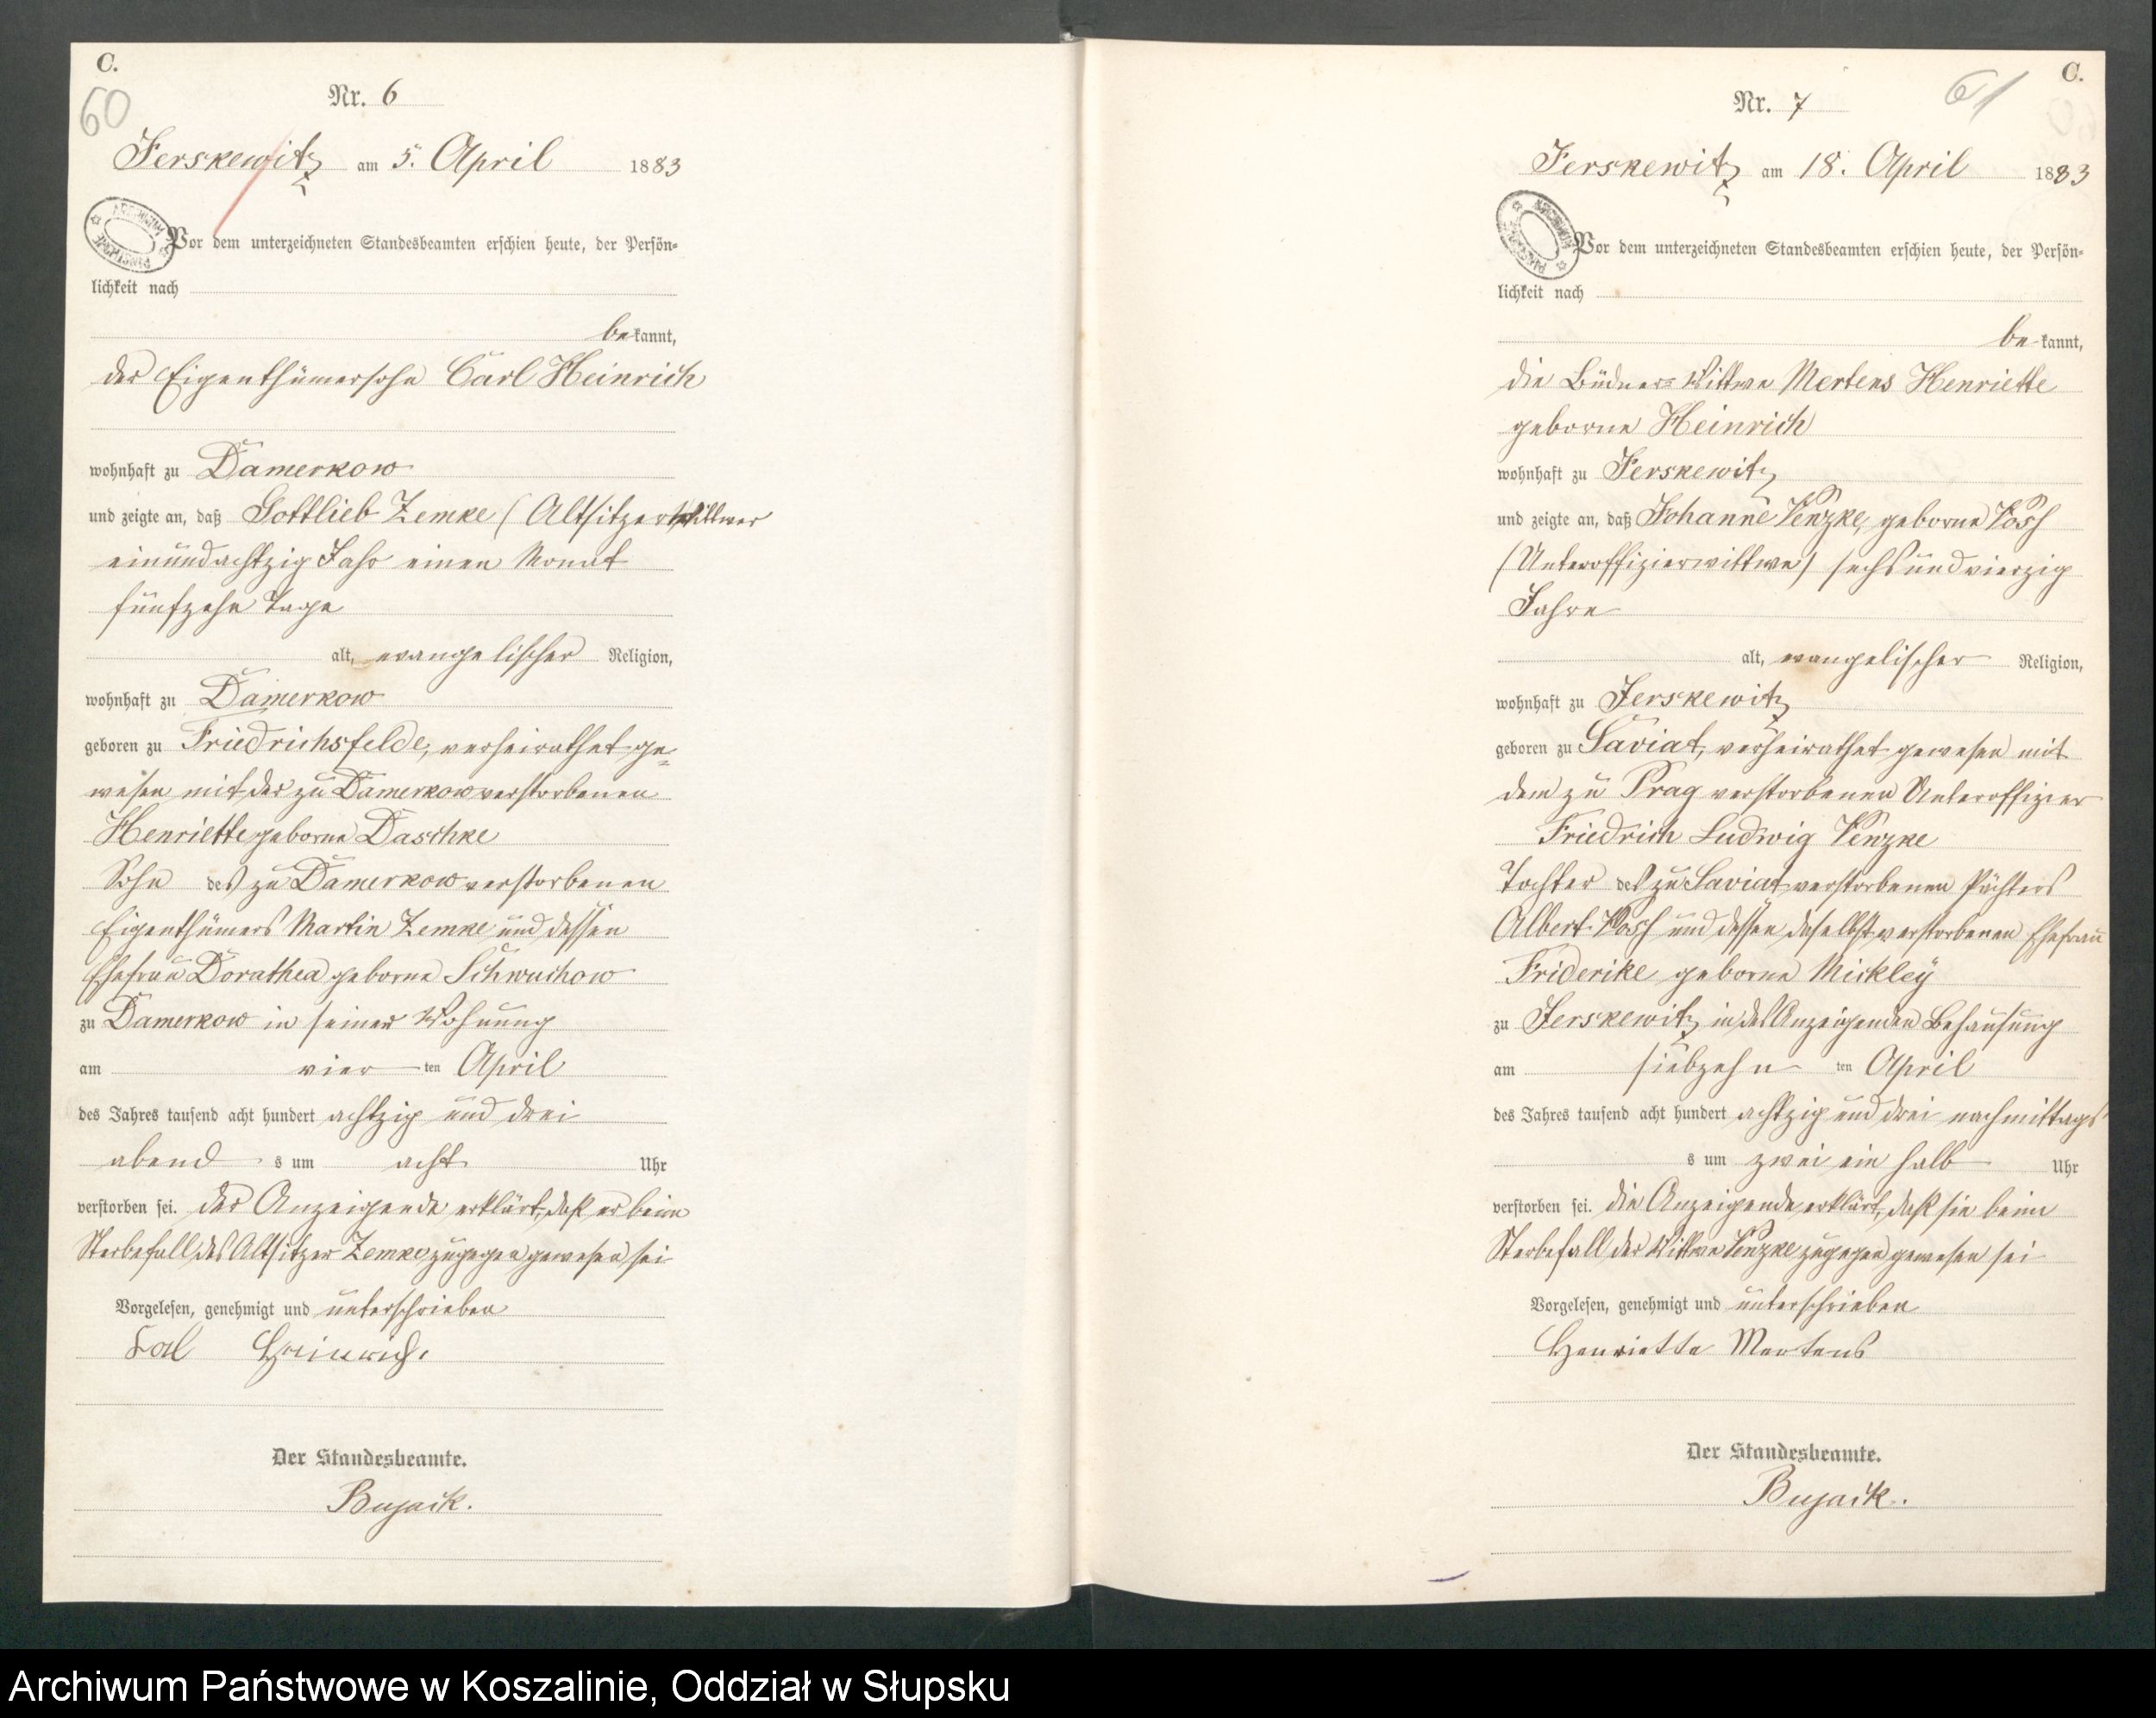 C.
60
Nr. 6
Jerskewitz am 5. April 1883
ARCHIWUM PAŃSTWOWE
Vor dem unterzeichneten Standesbeamten erschien heute, der Persön-
lichkeit nach
bekannt,
der Eigenthümersohn Carl Heinrich
wohnhaft zu Damerkow
und zeigte an, daß Gottlieb Zemke (Altsitzer Wittwer
einundachtzig Jahr einen Monat
fünfzehn Tage
alt, evangelischer Religion,
wohnhaft zu Damerkow
geboren zu Friedrichsfelde, verheirathet ge-
wesen mit der zu Damerkow verstorbenen
Henriette geborne Daschke
Sohn des zu Damerkow verstorbenen
Eigenthümers Martin Zemke und dessen
Ehefrau Dorathea geborne Schwuchow
zu Damerkow in seiner Wohnung
am vier ten April
des Jahres tausend acht hundert achtzig und drei
abend s um acht Uhr
verstorben sei. der Anzeigende erklärt, daß er beim
Sterbefall des Altsitzer Zemke zugegen gewesen sei
Vorgelesen, genehmigt und unterschrieben
Carl Heinrich.
Der Standesbeamte.
Bujack.
C.
61
Nr. 7
Jerskewitz am 18. April 1883
ARCHIWUM PAŃSTWOWE
Vor dem unterzeichneten Standesbeamten erschien heute, der Persön-
lichkeit nach
bekannt,
die Büdner-Wittwe Mertens Henriette
geborne Heinrich
wohnhaft zu Jerskewitz
und zeigte an, daß Johanne Venzke, geborne Voss
(Unteroffizierwittwe) sechsundvierzig
Jahre
alt, evangelischer Religion,
wohnhaft zu Jerskewitz
geboren zu Saviat, verheirathet gewesen mit
dem zu Prag verstorbenen Unteroffizier
Friedrich Ludwig Venzke
Tochter des zu Saviat verstorbenen Pächters
Albert Voss und dessen daselbst verstorbenen Ehefrau
Friderike geborne Mickley
zu Jerskewitz in des Anzeigenden Behausung
am siebzehn ten April
des Jahres tausend acht hundert achtzig und drei nachmittags
s um zwei ein halb Uhr
verstorben sei. die Anzeigende erklärt, daß sie beim
Sterbefall der Wittwe Venzke zugegen gewesen sei
Vorgelesen, genehmigt und unterschrieben
Henriette Mertens
Der Standesbeamte.
Bujack.
Archiwum Państwowe w Koszalinie, Oddział w Słupsku